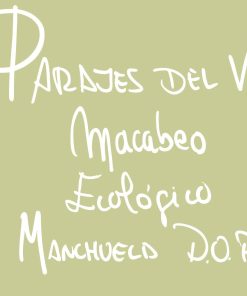 PARAJES DEL V
Macabeo
Ecológico
MANCHUELA D.O.P